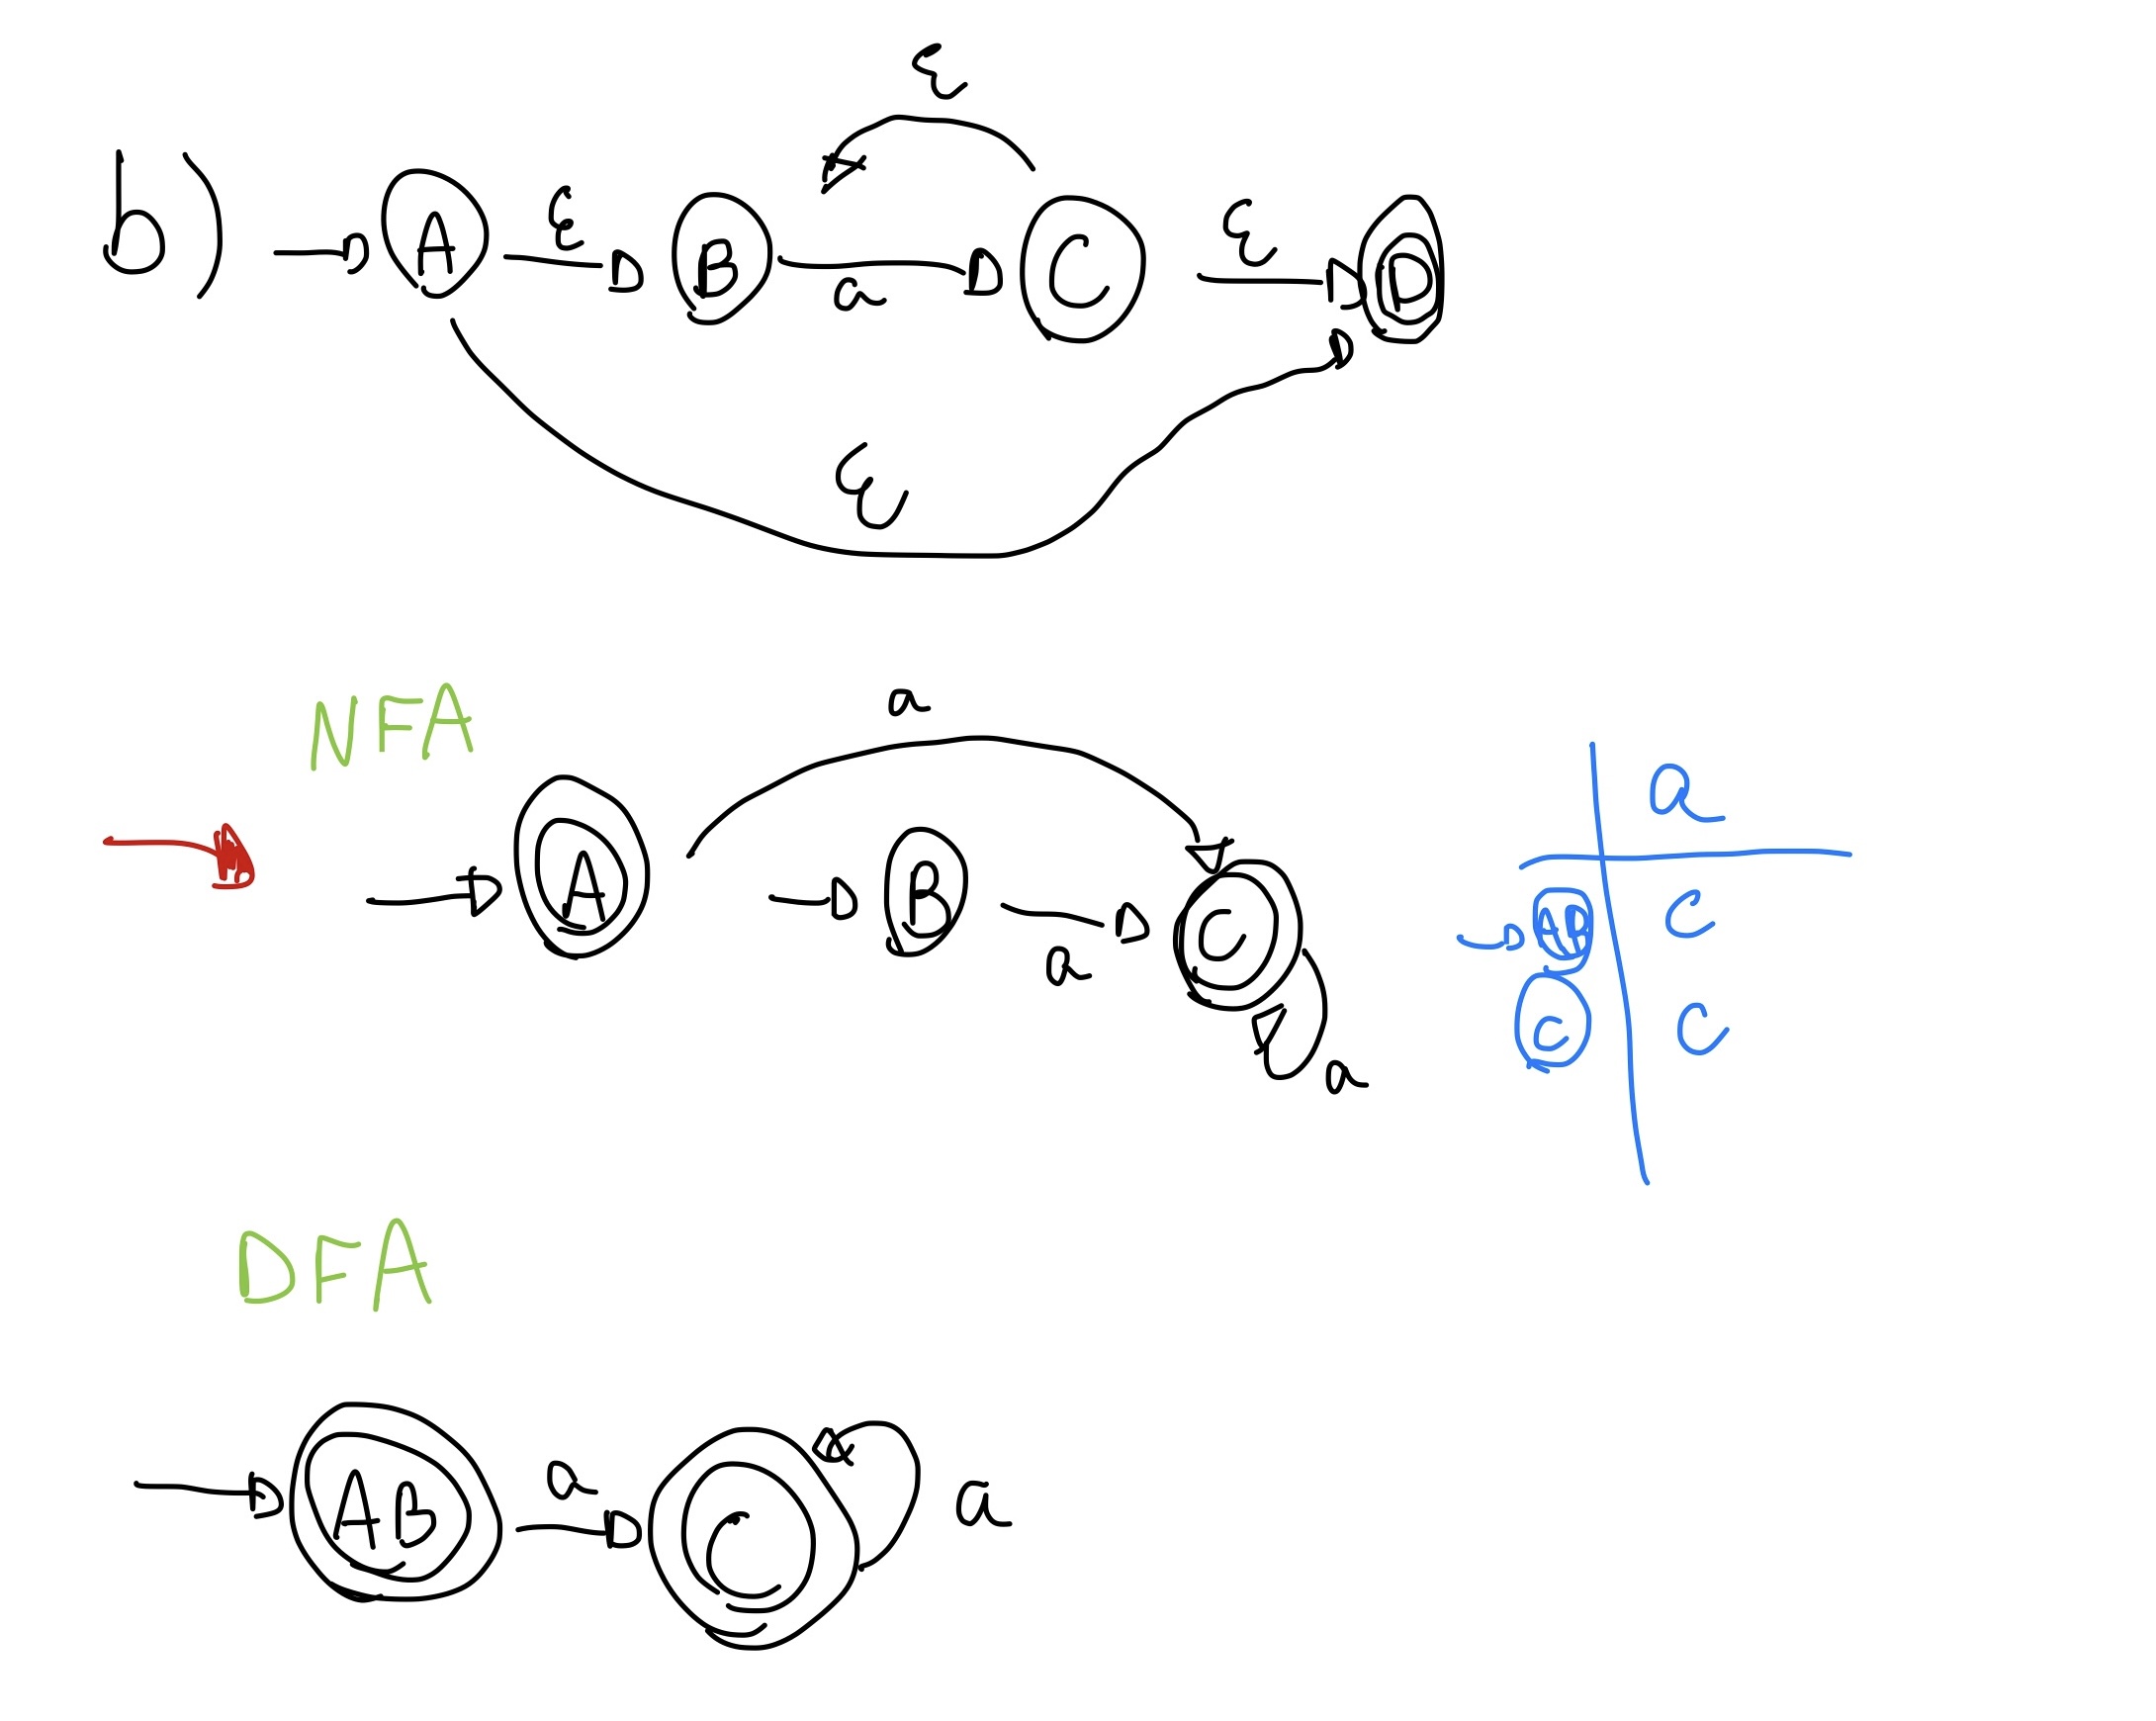 ε
b) A ε B a C ε D
ε
NFA
a
a
A B a C a
AB C
C C
DFA
AB a C a